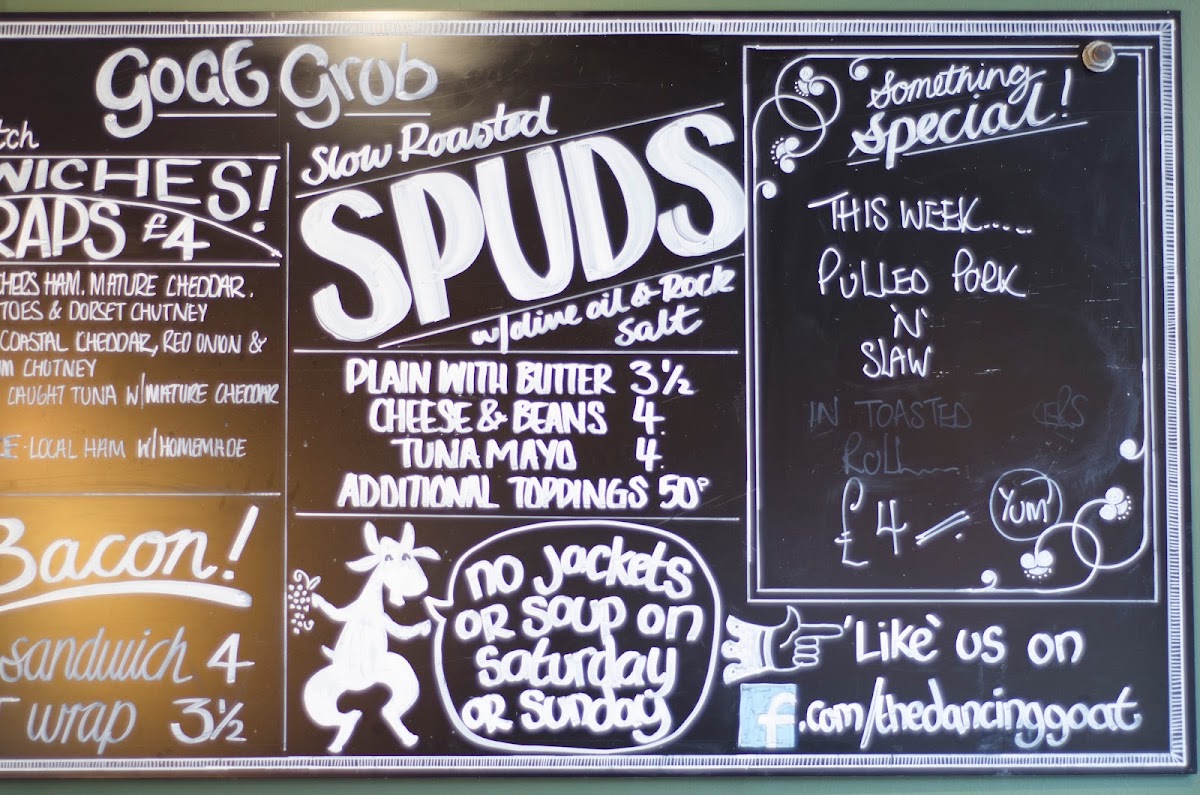 Goat Grub
tch
WICHES!
RAPS £4
CHERS HAM. MATURE CHEDDAR.
TOES & DORSET CHUTNEY
COASTAL CHEDDAR, RED ONION &
UM CHUTNEY
CAUGHT TUNA W/MATURE CHEDDAR
E·LOCAL HAM W/HOMEMADE
Bacon!
sandwich 4
T wrap 3½
Slow Roasted
SPUDS
w/olive oil & Rock
Salt
PLAIN WITH BUTTER 3½
CHEESE & BEANS 4.
TUNA MAYO 4.
ADDITIONAL TOPPINGS 50P
no jackets
or soup on
Saturday
or sunday
Something
special!
THIS WEEK.....
PULLED PORK
'N'
SLAW
IN TOASTED
ROLL....
£4
YUM
'Like' us on
f.com/thedancinggoat